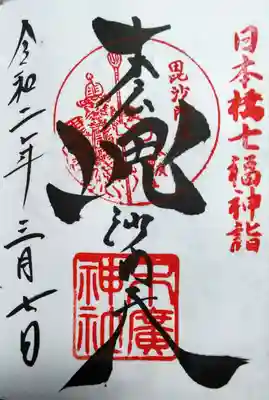 日本橋七福神詣
毘沙門天
末廣神社
令和二年三月七日